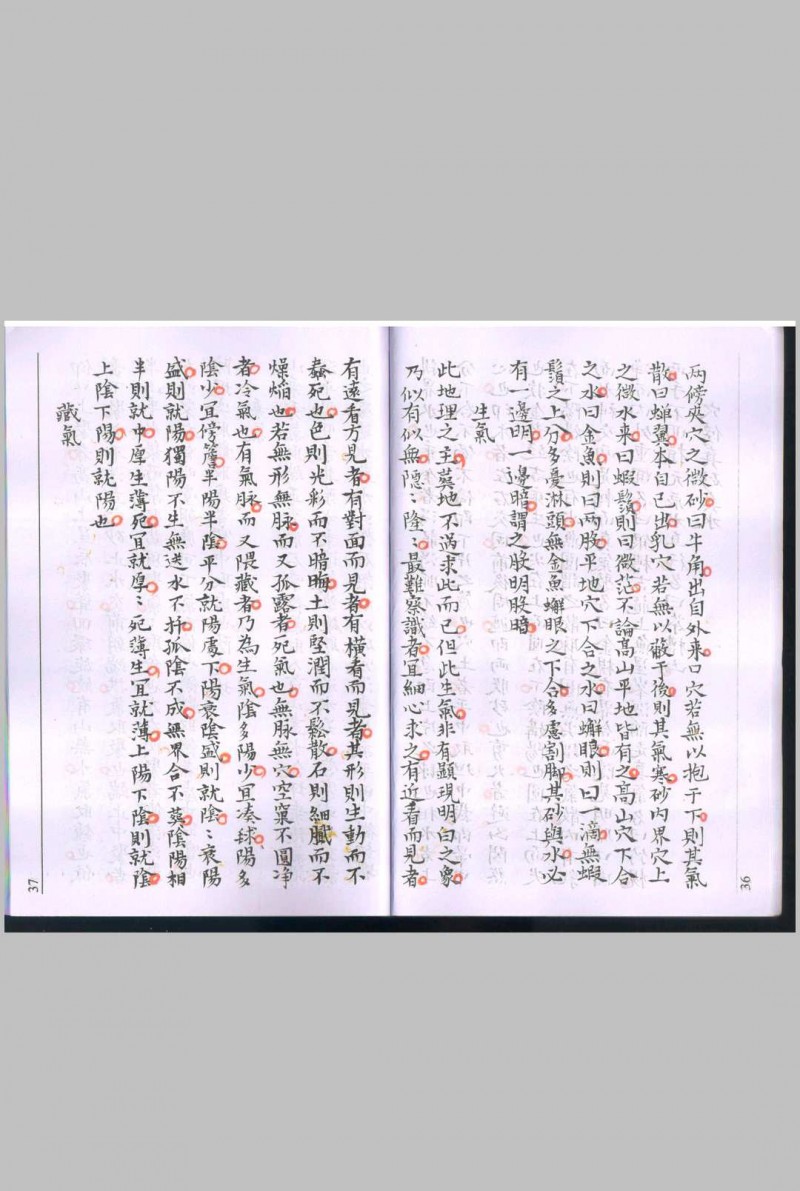 36
兩傍夾穴之微砂曰牛角出自外來口穴若無以抱于下則其氣
散曰蟬翼本自己出乳穴若無以蔽于後則其氣寒砂內界穴上
之微水來曰蝦鬚則曰微茫不論髙山平地皆有之髙山穴下合
之水曰金魚則曰兩股平地穴下合之水曰蠏眼則曰一滴無蝦
鬚之上分多憂淋頭無金魚蠏眼之下合多慮割脚其砂與水必
有一邊明一邊暗謂之股明股暗
生氣
此地理之主葬地不過求此而已但此生氣非有顯現明白之象
乃似有似無隠〻隆〻最難察識者宜細心求之有近看而見者
有遠看方見者有對面而見者有橫看而見者其形則生動而不
蠢死也色則光彩而不暗晦土則堅潤而不鬆散石則細膩而不
燥熖也若無形無脉而又孤露者死氣也無脉無穴空窠不圓净
者冷氣也有氣脉而又隈藏者乃為生氣陰多陽少宜湊毬陽多
陰少宜傍簷半陽半陰平分就陽處下陽衰陰盛則就陰〻衰陽
盛則就陽獨陽不生無送水不扦孤陰不成無界合不葬陰陽相
半則就中厚生薄死宜就厚〻死薄生宜就薄上陽下陰則就陰
上陰下陽則就陽也
藏氣
37